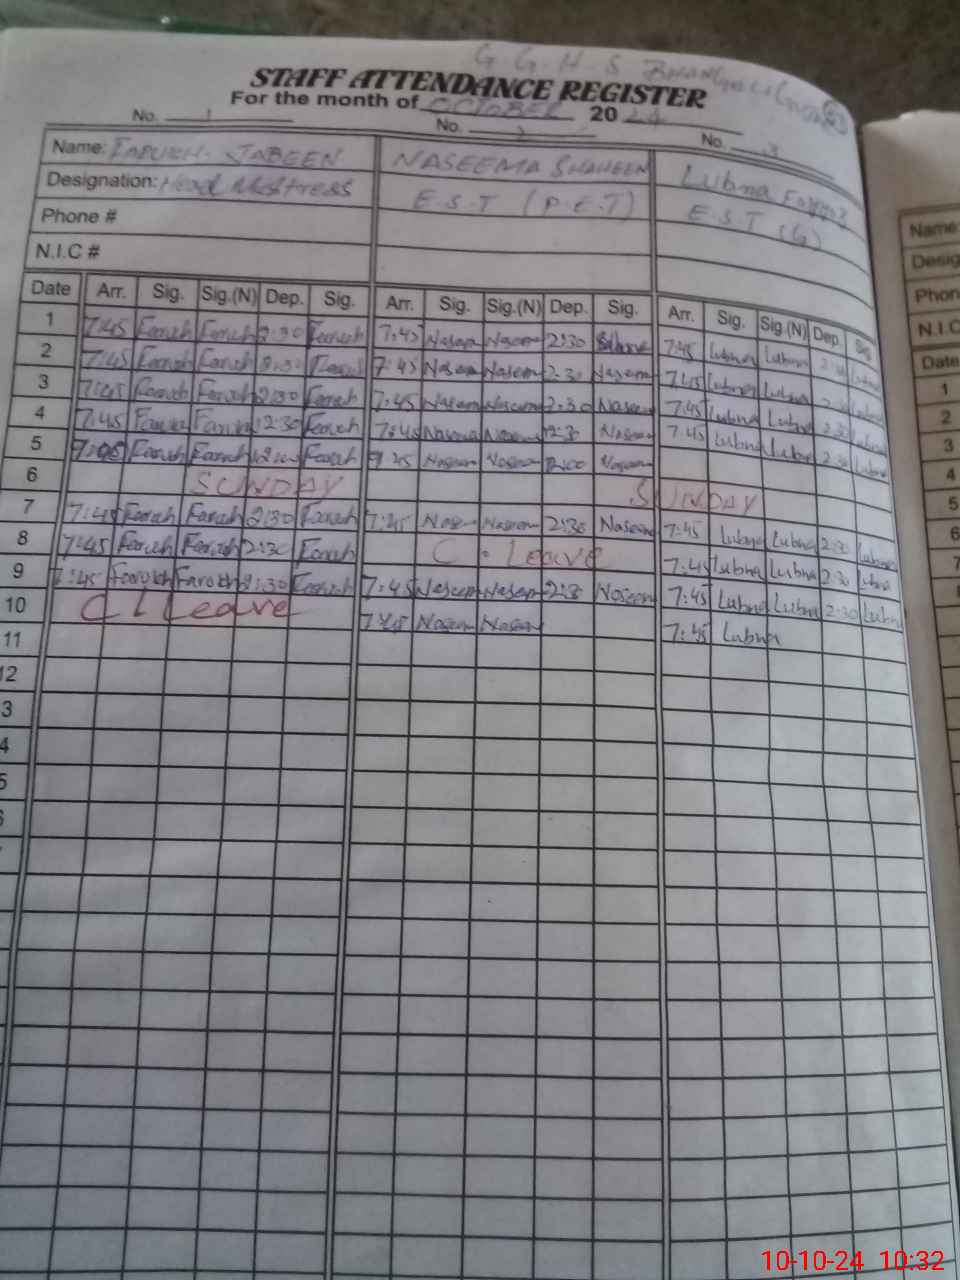 G G H S
STAFF ATTENDANCE REGISTER
For the month of OCTOBER 2024
No. 1 No. 2 No. 3
Name: FARUKH JABEEN NASEEMA SHAHEEN Lubna
Designation: Head Mistress E.S.T (P.E.T) E.S.T (G)
Phone #
N.I.C #
Date Arr. Sig. Sig.(N) Dep. Sig. Arr. Sig. Sig.(N) Dep. Sig. Arr. Sig. Sig.(N) Dep. Sig
1 7:45 Farukh Farukh 2:30 Farukh 7:45 Naseem Naseem 2:30 7:45 Lubna Lubna 2:30 Lubna
2 7:45 Farukh Farukh 2:30 Farukh 7:45 Naseem Naseem 2:30 Naseem 7:45 Lubna Lubna 2:30 Lubna
3 7:45 Farukh Farukh 2:30 Farukh 7:45 Naseem Naseem 2:30 Naseem 7:45 Lubna Lubna 2:30 Lubna
4 7:45 Farukh Farukh 2:30 Farukh 7:45 Naseem Naseem 2:30 Naseem 7:45 Lubna Lubna 2:30 Lubna
5 Farukh Farukh 12:00 Farukh 7:45 Naseem Naseem 12:00 Naseem
6 SUNDAY SUNDAY
7 7:45 Farukh Farukh 2:30 Farukh 7:45 Naseem Naseem 2:30 Naseem 7:45 Lubna Lubna 2:30 Lubna
8 7:45 Farukh Farukh 2:30 Farukh C. Leave 7:45 Lubna Lubna 2:30 Lubna
9 7:45 Farukh Farukh 2:30 Farukh 7:45 Naseem Naseem 2:30 Naseem 7:45 Lubna Lubna 2:30 Lubna
10 C L Leave 7:45 Naseem Naseem 7:45 Lubna
11
12
3
4
5
Name:
Desig
Phon
N.I.C
Date
1
2
3
4
5
6
7
10-10-24 10:32